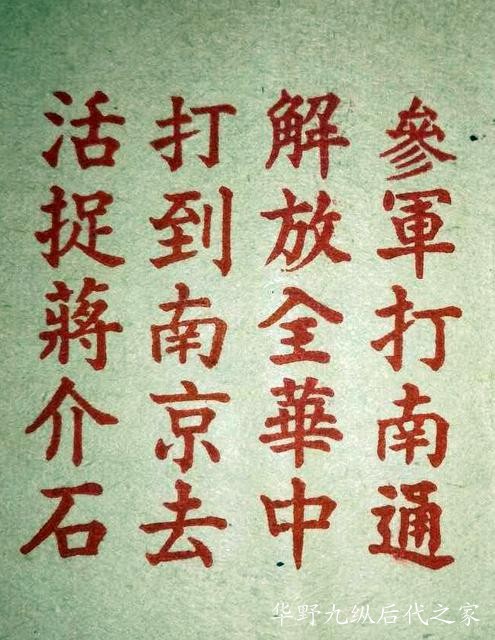 參軍打南通
解放全華中
打到南京去
活捉蔣介石
华野九纵后代之家